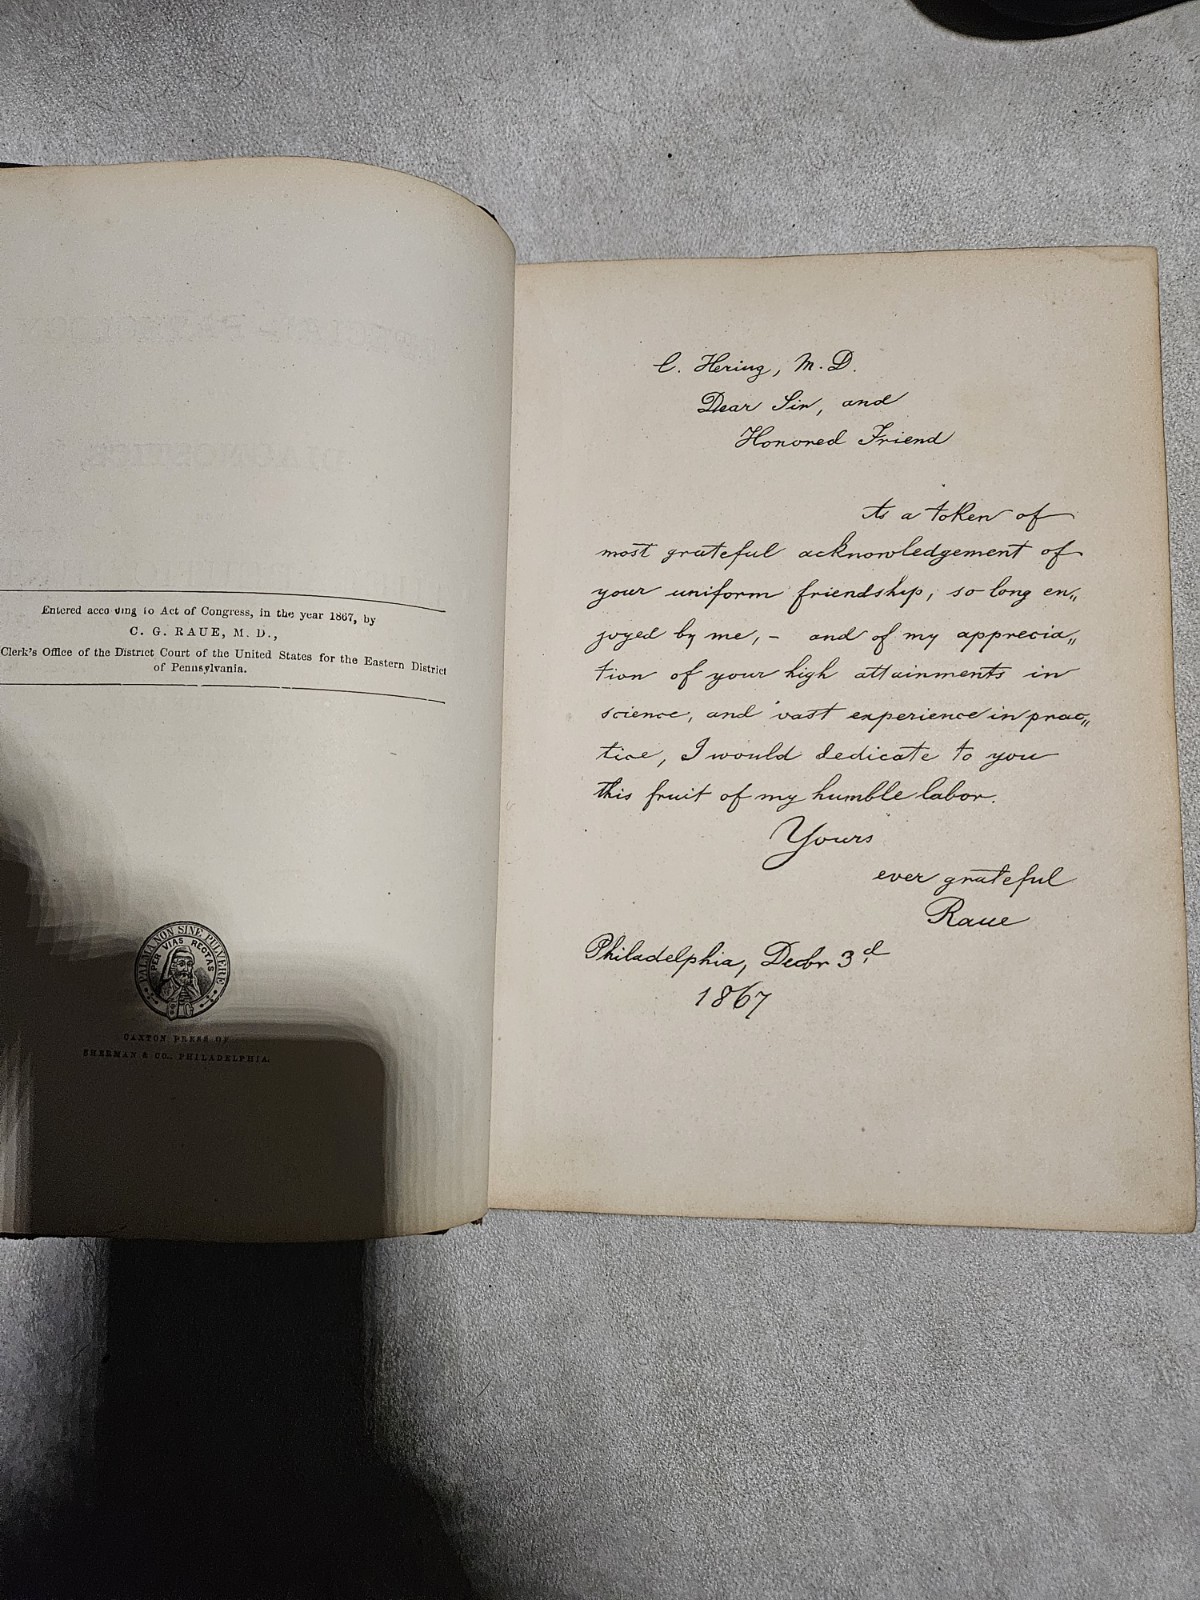 Entered according to Act of Congress, in the year 1867, by
C. G. RAUE, M. D.,
Clerk's Office of the District Court of the United States for the Eastern District
of Pennsylvania.
PALMA NON SINE PULVERE
PER VIAS RECTAS
CAXTON PRESS OF
SHERMAN & CO., PHILADELPHIA.
C. Hering, M. D.
Dear Sir, and
Honored Friend
As a token of
most grateful acknowledgement of
your uniform friendship, so long en„
joyed by me, – and of my apprecia„
tion of your high attainments in
science, and vast experience in prac„
tice, I would dedicate to you
this fruit of my humble labor.
Yours
ever grateful
Raue
Philadelphia, Decbr 3d
1867